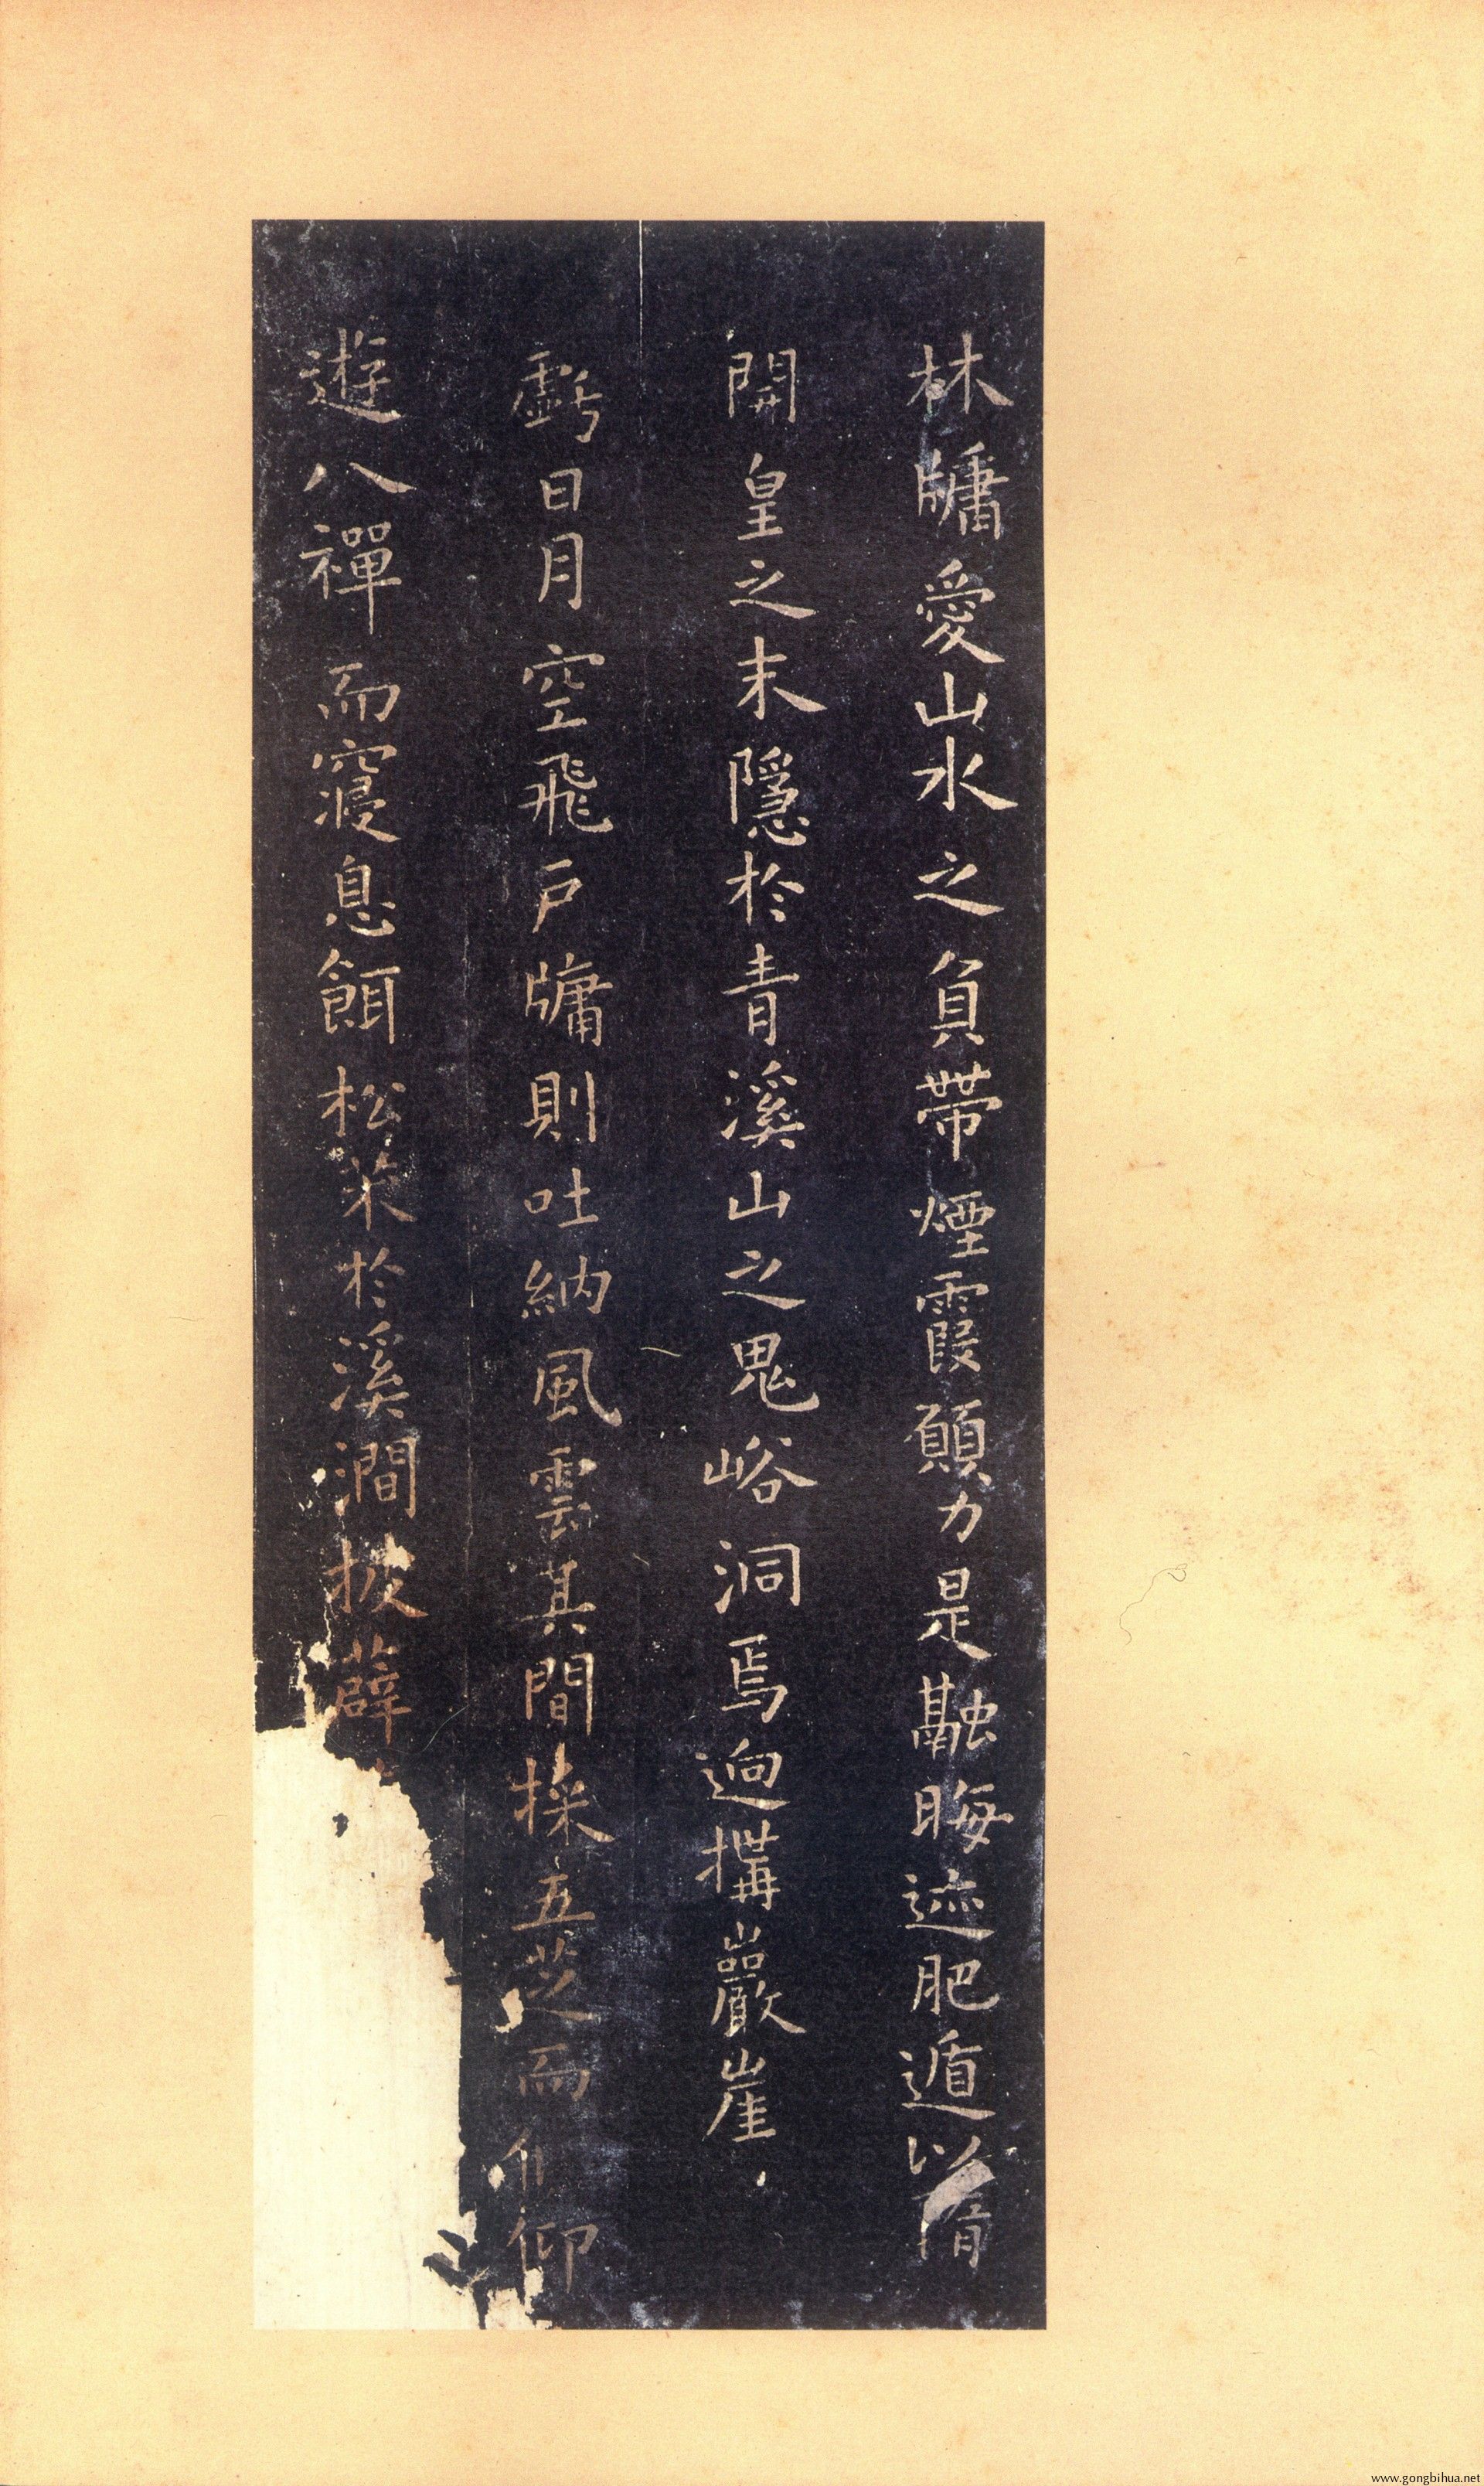 林牖愛山水之負帶煙霞願力是融晦迹肥遁以隋
開皇之末隱於青溪山之鬼峪洞焉迥搆巖崖
虧日月空飛戶牖則吐納風雲其間採五芝而仰
遊八禪而寢息餌松荗於溪澗披薜
www.gongbihua.net